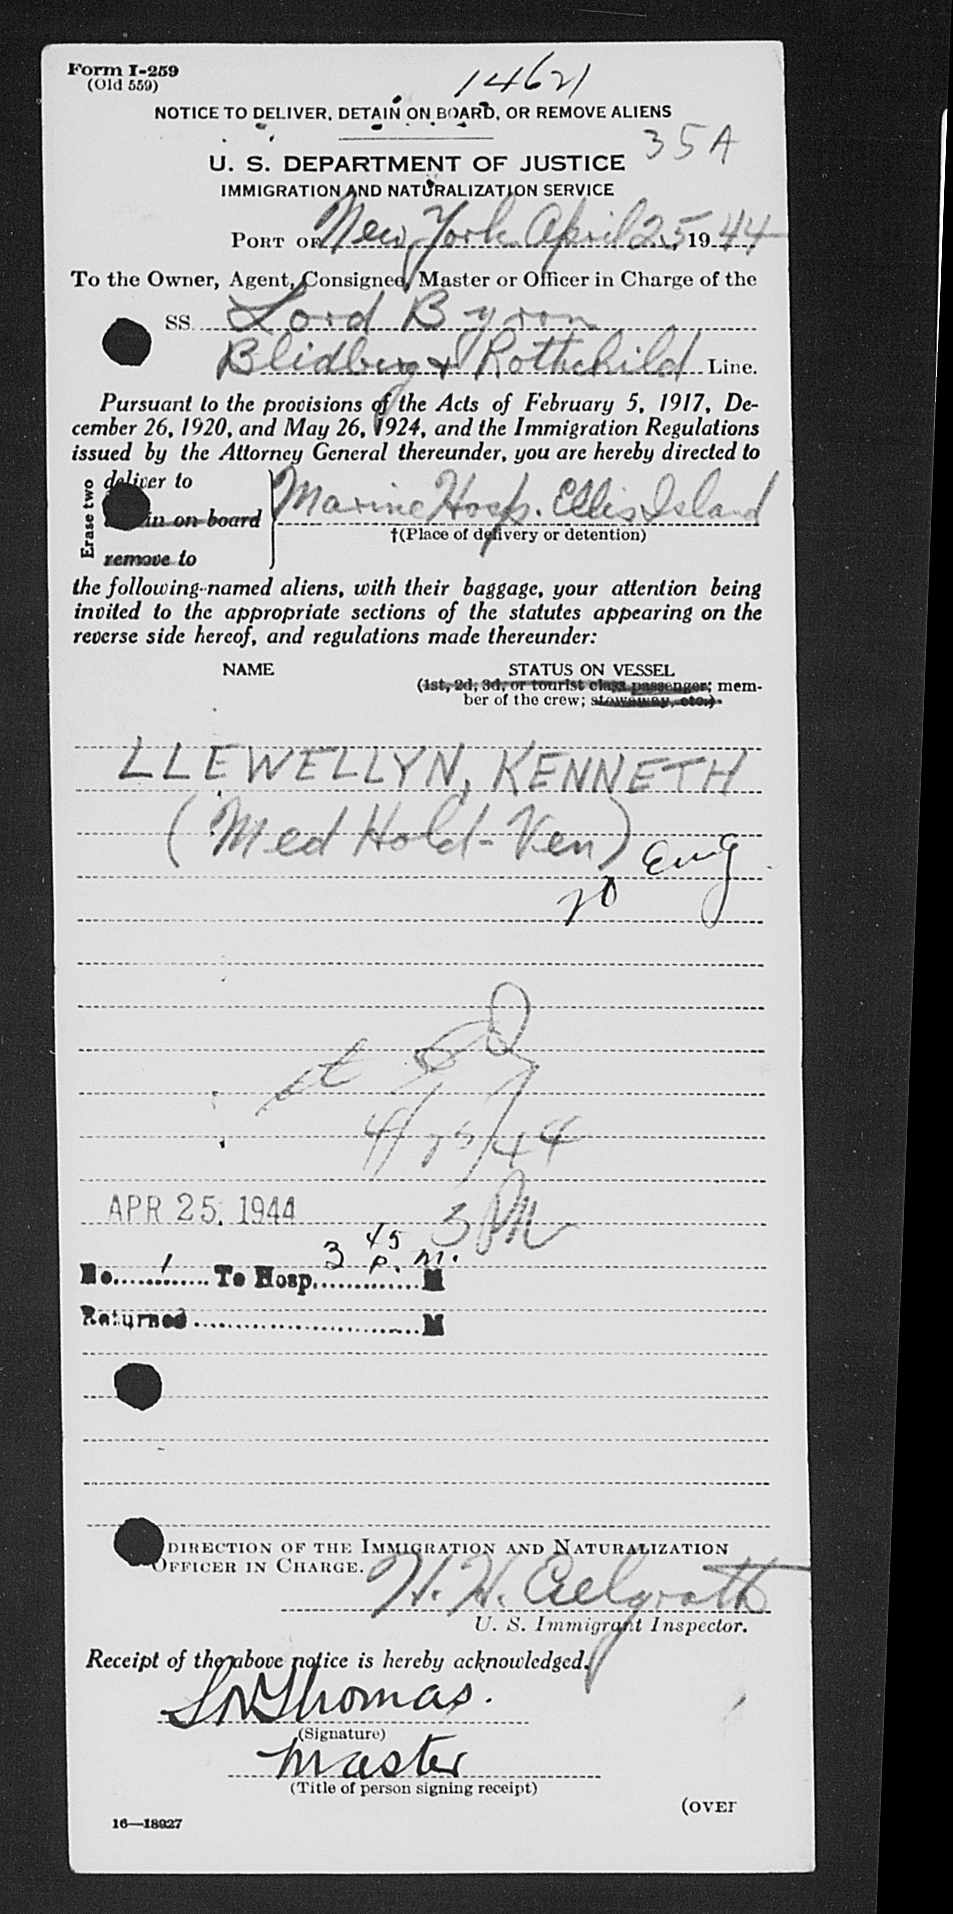 Form I-259
(Old 559)
14621
NOTICE TO DELIVER, DETAIN ON BOARD, OR REMOVE ALIENS
35A
U. S. DEPARTMENT OF JUSTICE
IMMIGRATION AND NATURALIZATION SERVICE
PORT OF New York April 25, 1944
To the Owner, Agent, Consignee, Master or Officer in Charge of the
SS. Lord Byron
Blidberg & Rothchild Line.
Pursuant to the provisions of the Acts of February 5, 1917, De-
cember 26, 1920, and May 26, 1924, and the Immigration Regulations
issued by the Attorney General thereunder, you are hereby directed to
Erase two
deliver to
in on board
remove to
Marine Hosp. Ellis Island
†(Place of delivery or detention)
the following-named aliens, with their baggage, your attention being
invited to the appropriate sections of the statutes appearing on the
reverse side hereof, and regulations made thereunder:
NAME STATUS ON VESSEL
(1st, 2d, 3d, or tourist class passenger; mem-
ber of the crew; stowaway, etc.)
LLEWELLYN, KENNETH
(Med Hold-Ven)
Eng
4/25/44
3 PM
APR 25, 1944
No. 1 To Hosp. 3 45 P. M. M
Returned M
DIRECTION OF THE IMMIGRATION AND NATURALIZATION
OFFICER IN CHARGE.
H. H.
U. S. Immigrant Inspector.
Receipt of the above notice is hereby acknowledged.
Thomas.
(Signature)
Master
(Title of person signing receipt)
(OVER
16—18927